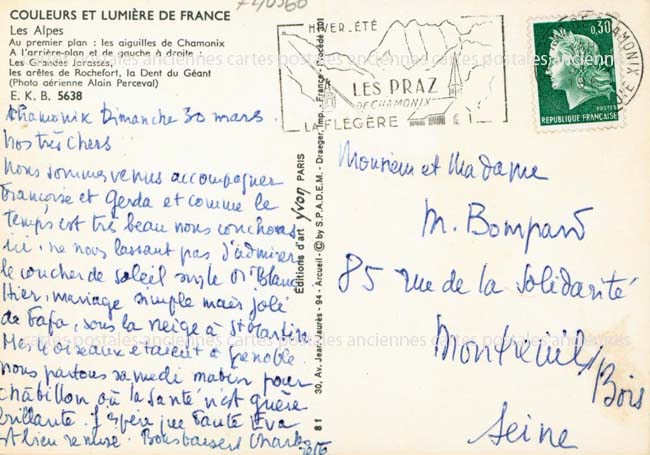 COULEURS ET LUMIÈRE DE FRANCE
Les Alpes
Au premier plan : les aiguilles de Chamonix
A l'arrière-plan et de gauche à droite :
Les Grandes Jorasses,
les arêtes de Rochefort, la Dent du Géant
(Photo aérienne Alain Perceval)
E. K. B. 5638
Chamonix Dimanche 30 mars.
Nos très Chers
Nous sommes venus accompagner
Françoise et Gerda et comme le
temps est très beau nous couchons
ici. ne nous lassant pas d'admirer
le coucher de soleil sur le Mt Blanc
Hier, mariage simple mais joli
de Fafa, sous la neige à St Martin
Mes oiseaux étaient à Grenoble.
nous partons samedi matin pour
Châtillon où la santé n'est guère
brillante. J'espère que Tante Eva
est bien remise. Bons baisers
Éditions d'art Yvon PARIS
30, Av. Jean-Jaurès - 94 - Arcueil - © by S.P.A.D.E.M. - Draeger, Imp. - France - Procédé 301
81
HIVER_ÉTÉ
LES PRAZ
DE CHAMONIX
LA FLÉGÈRE
CHAMONIX
0,30
POSTES
REPUBLIQUE FRANÇAISE
Monsieur et Madame
M. Bompard
85 rue de la Solidarité
Montreuil s/
Bois
Seine
cartes postales anciennes cartes postales anciennes